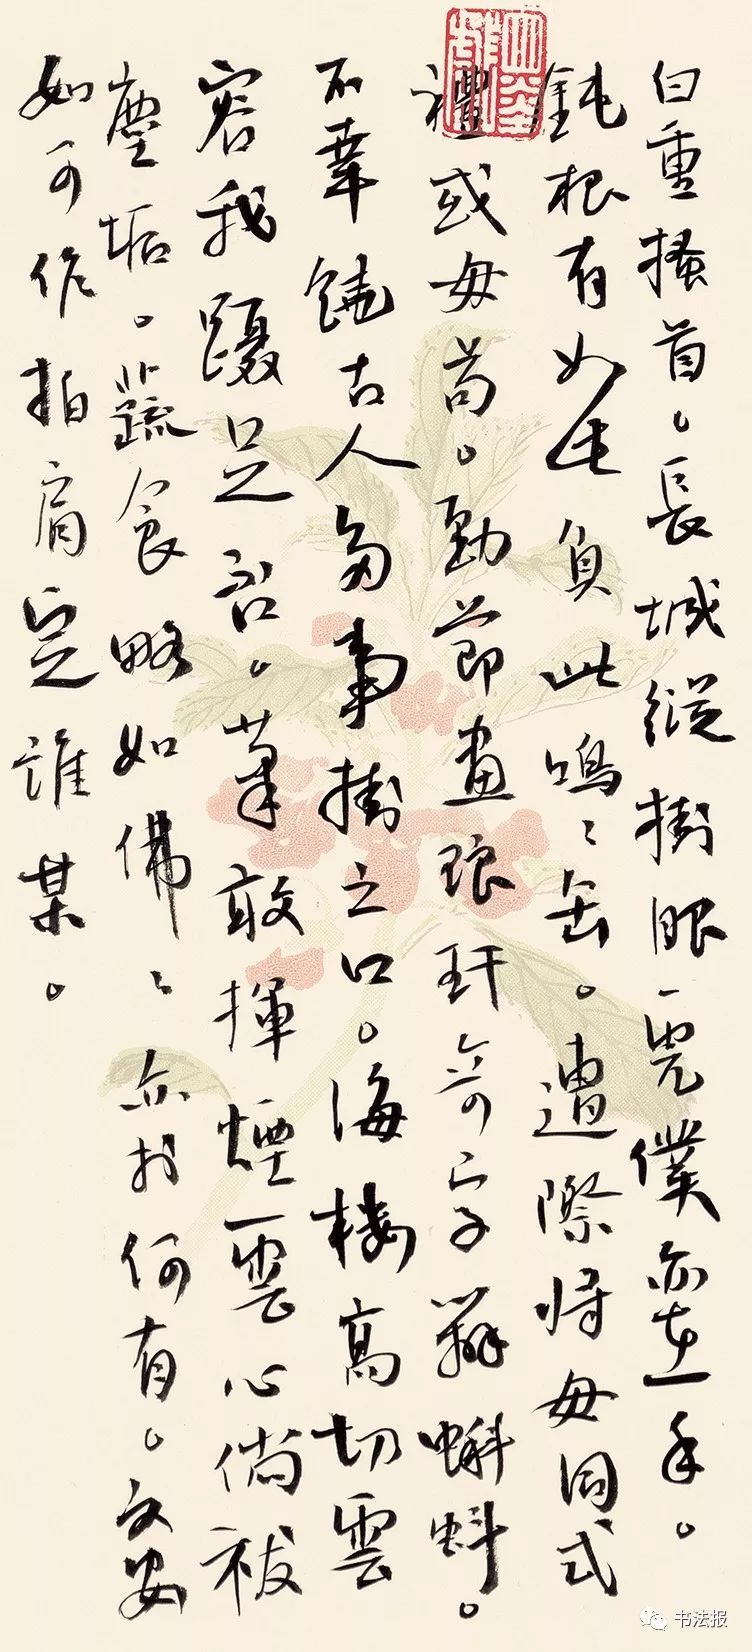 白重搔首。長城縱樹眼一僕亦手。
鈍根有如負此鳴〻缶。遭際將毋同式
禮或毋苟。勁節畫琅玕奇字辨蝌蚪。
不幸饒古人多事掛之口。海樓高切雲
容我躡足否。筆敢揮煙雲心倘祓
塵垢。蔬食略如佛〻亦於何有。文安
如可作拍肩定誰某。
书法报